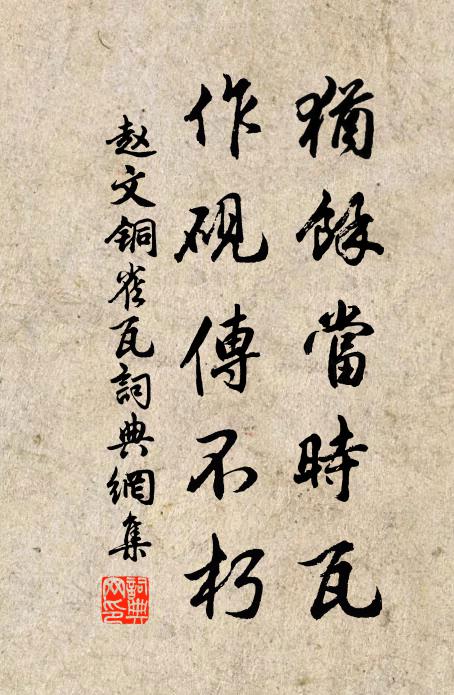 猶餘當時瓦
作硯傳不朽
赵文铜雀瓦詞典網集
詞典
网印